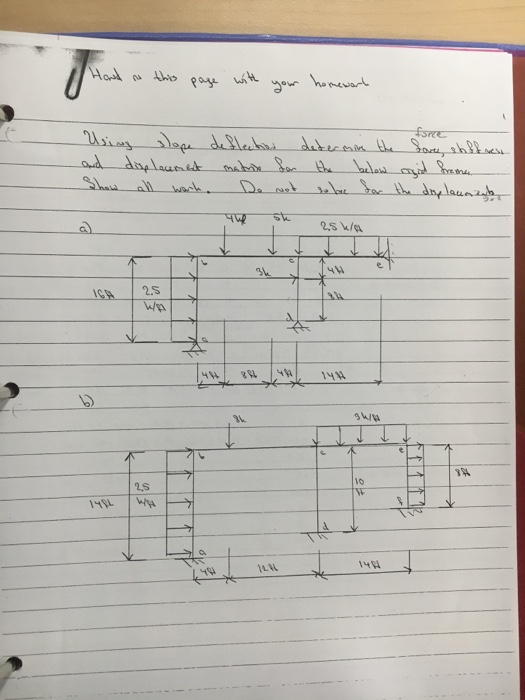 Hand in this page with your homework
force
Using slope deflection determine the stiffness
and displacement matrix for the below rigid frame
Show all work. Do not solve for the displacements
a)
4k 5k 2.5 k/ft
b c e
3k 4ft
16ft 2.5
k/ft 8ft
d
a
4ft 8ft 4ft 14ft
b)
8k 3k/ft
b c e
2.5 10 8ft
14ft k/ft ft
f
d
a
4ft 12ft 14ft